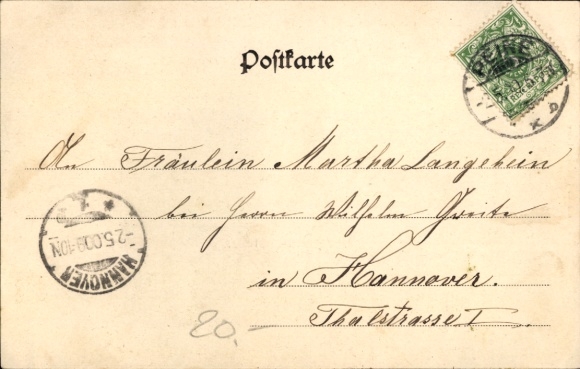 Postkarte
PEINE
An Fräulein Martha Langehein
bei Herrn Wilhelm Zweite
in Hannover.
Thalstrasse I
HANNOVER
-2.5.00.9-10N
20.-